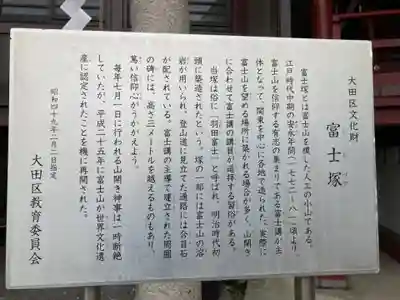 大田区文化財
富士塚
富士塚とは富士山を模した人工の小山である。
江戸時代中期の安永年間(一七七二~八一)頃より、
富士山を信仰する有志の集まりである富士講が主
体となって、関東を中心に各地で造られた。実際に
富士山を望める場所に築かれる場合が多く、山開き
に合わせて富士講の講員が遥拝する習俗がある。
当塚は俗に「羽田富士」と呼ばれ、明治時代初
頭に築造されたという。塚の一部には富士山の溶
岩が用いられ、登山道に見立てた通路には合目石
が配されている。富士講の主導で建立された周囲
の碑には、高さ三メートルを越えるものもあり、
篤い信仰心がうかがえよう。
毎年七月一日に行われる山開き神事は一時断絶
していたが、平成二十五年に富士山が世界文化遺
産に認定されたことを機に再開された。
昭和四十九年二月二日指定
大田区教育委員会